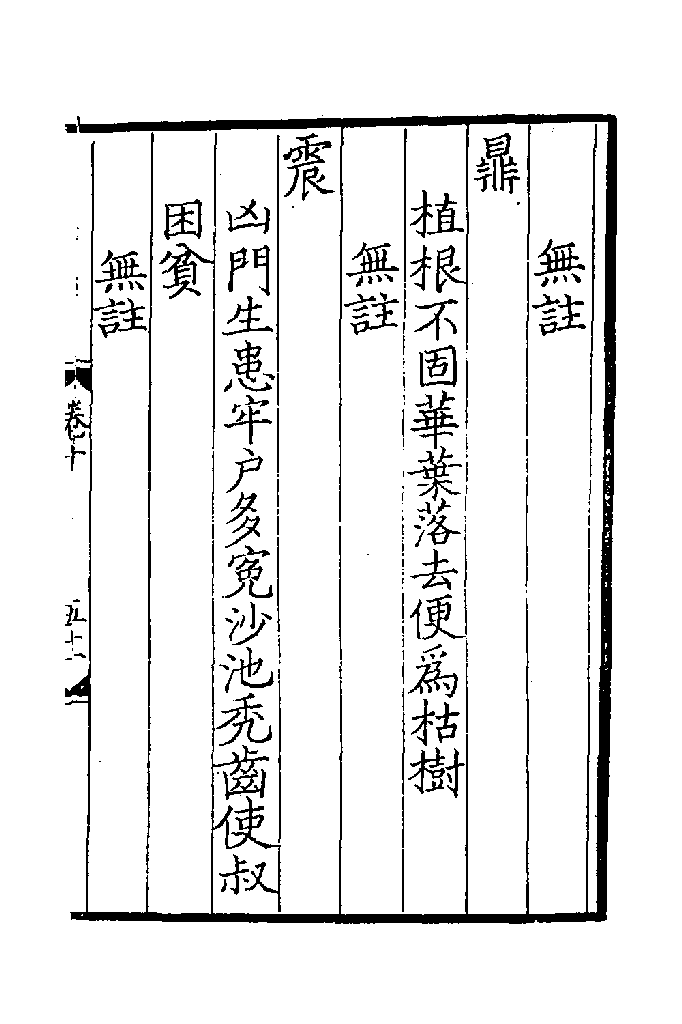 無註
鼎
植根不固華葉落去便為枯樹
無註
震
凶門生患牢户多寃沙池秃齒使叔
困貧
無註
卷十